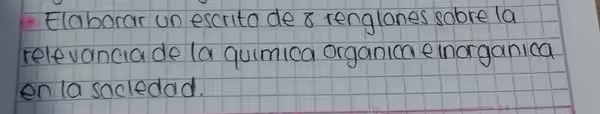 Elaborar un escrito de 8 renglones sobre la
relevancia de la quimica organica e inorganica
en la sociedad.